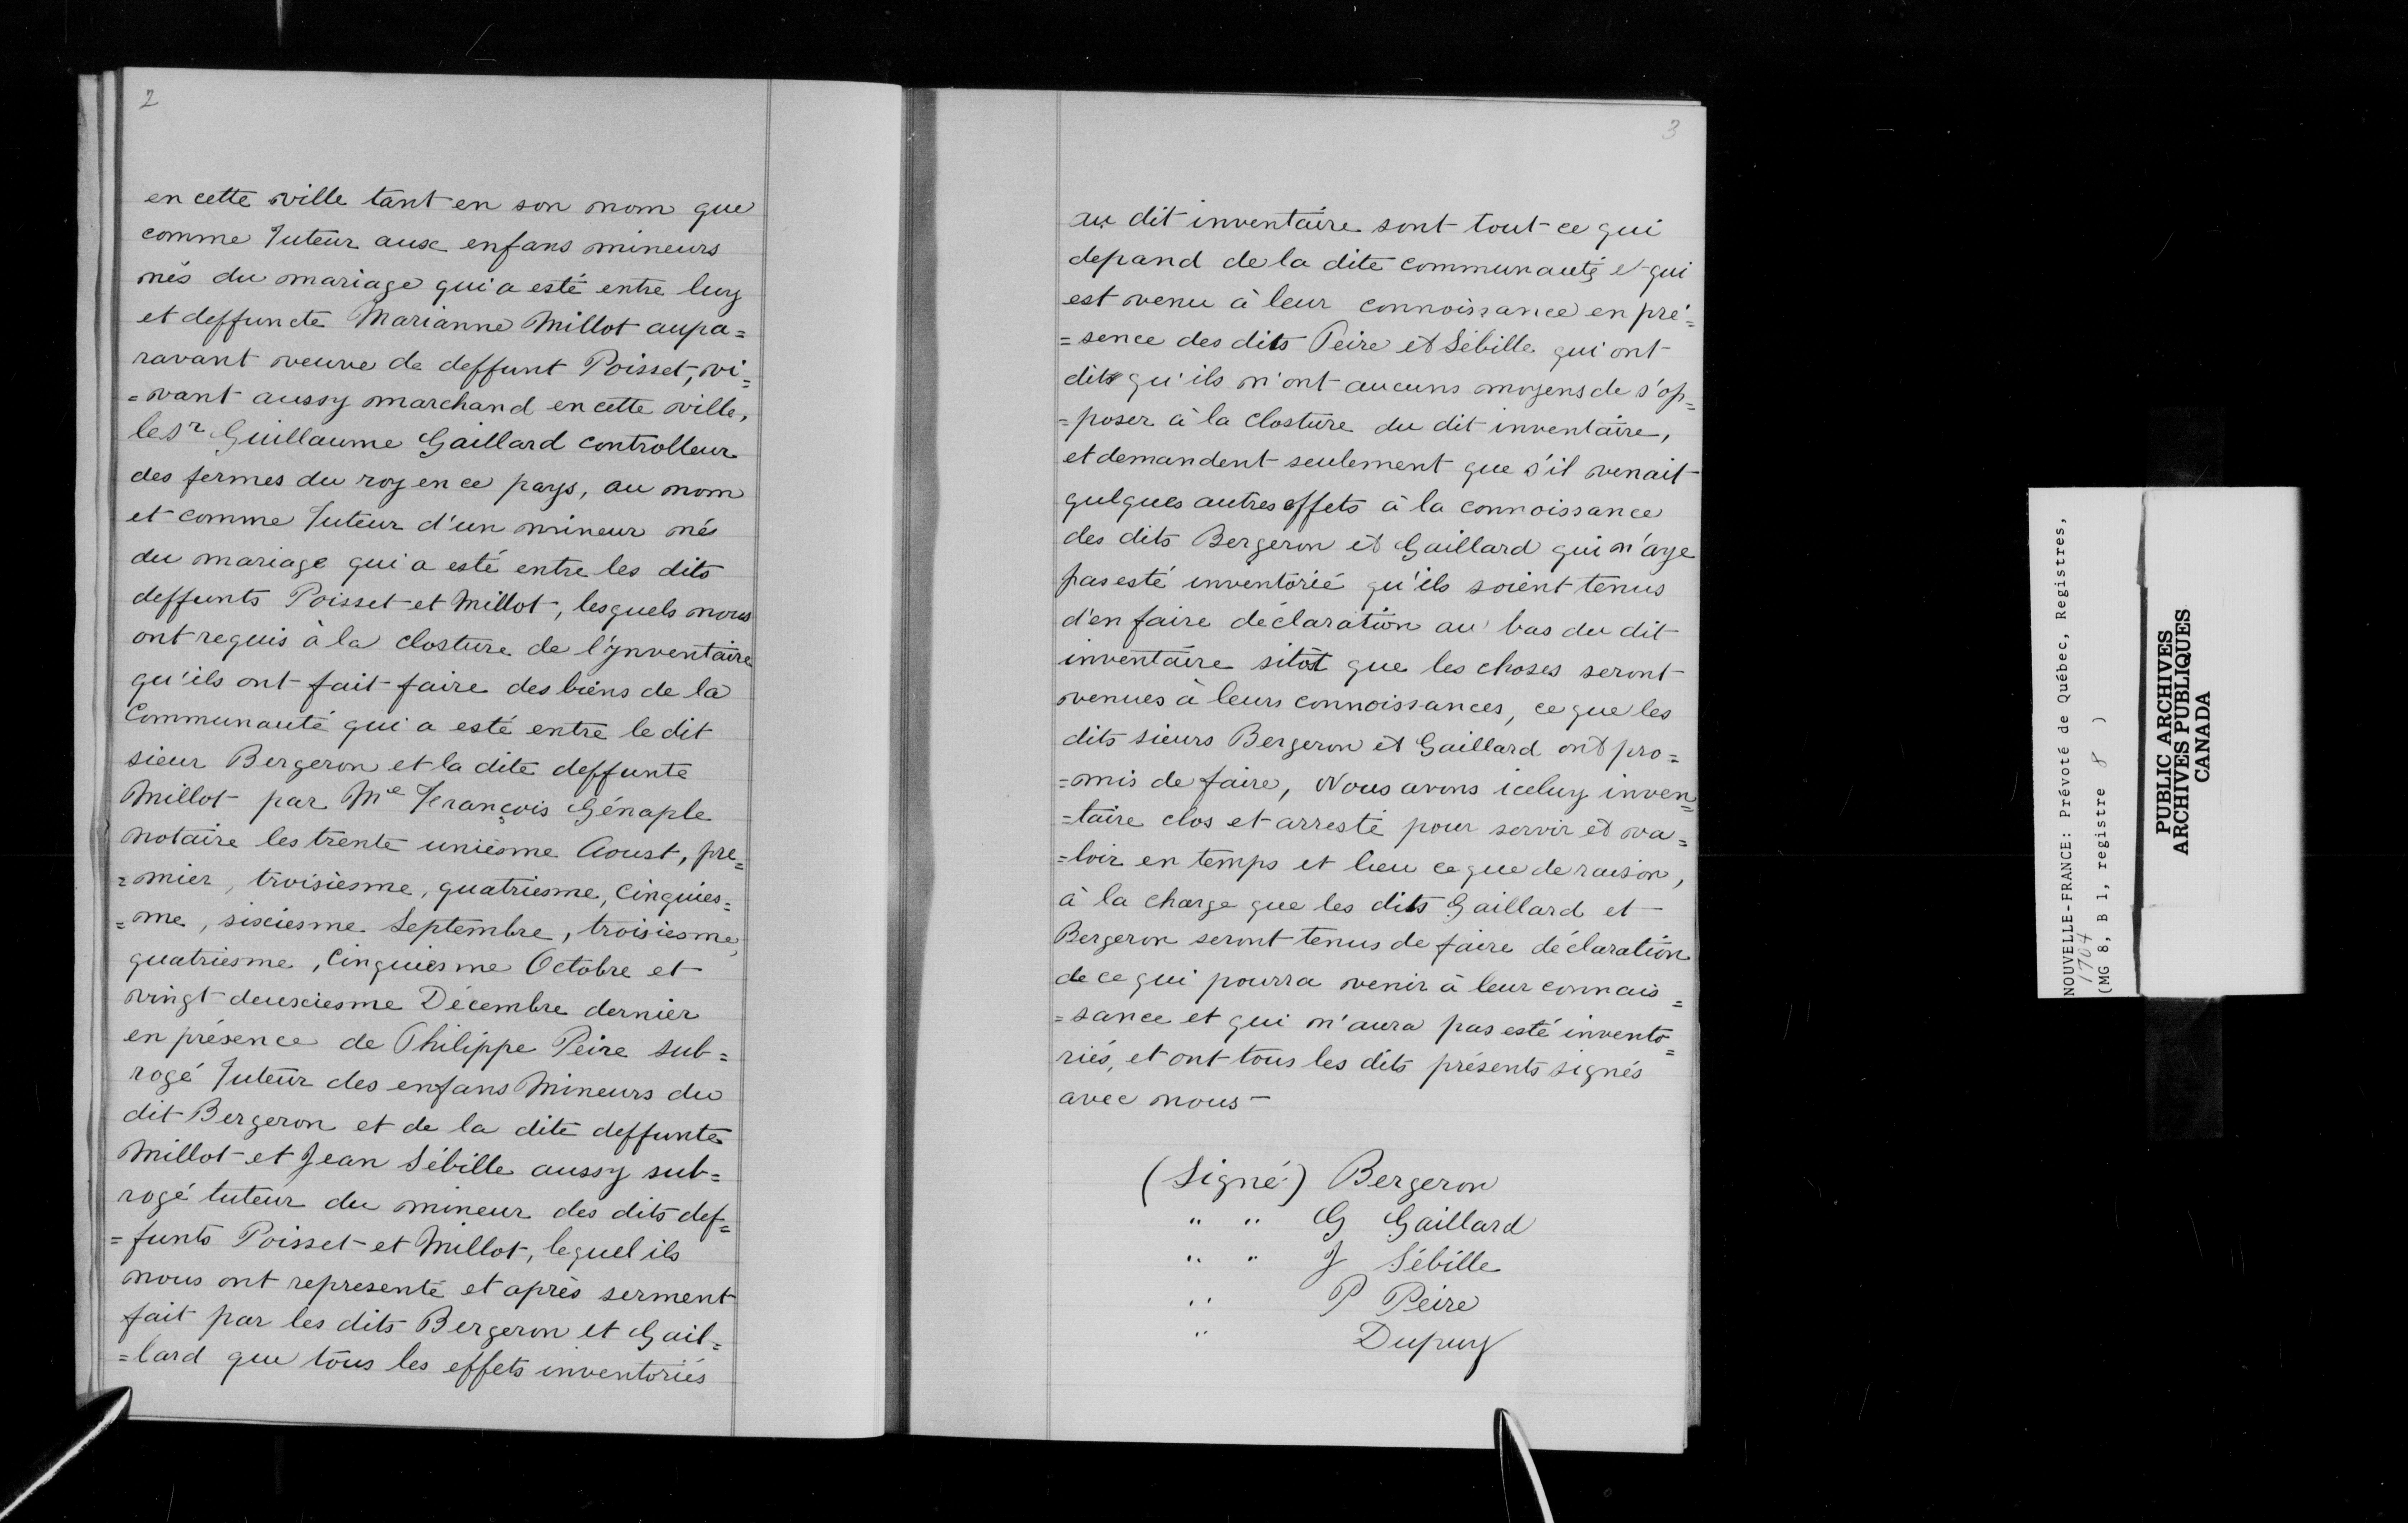 2
en cette ville tant en son nom que
comme Tuteur aux enfans mineurs
nés du mariage qui a esté entre luy
et deffuncte Marianne Millot aupa=
ravant veuve de deffunt Poisset, vi=
=vant aussy marchand en cette ville,
le Sr Guillaume Gaillard controlleur
des fermes du roy en ce pays, au nom
et comme Tuteur d'un mineur né
du mariage qui a esté entre les dits
deffunts Poisset et Millot, lesquels nous
ont requis à la closture de l'ynventaire
qu'ils ont fait faire des biens de la
Communauté qui a esté entre le dit
sieur Bergeron et la dite deffunte
Millot par Me François Génaple
notaire les trente uniesme Aoust, pre=
=mier, troisiesme, quatriesme, Cinquies=
=me, sixiesme Septembre, troisiesme,
quatriesme, Cinquiesme Octobre et
vingt deuxiesme Décembre dernier
en présence de Philippe Peire sub=
rogé Tuteur des enfans Mineurs du
dit Bergeron et de la dite deffunte
Millot et Jean Sébille aussy sub=
rogé tuteur du mineur des dits def=
=funts Poisset et Millot, lequel ils
nous ont representé et après serment
fait par les dits Bergeron et Gail=
=lard que tous les effets inventoriés
3
au dit inventaire sont tout ce qui
depand de la dite communauté et qui
est venu à leur connoissance en pré=
=sence des dits Peire et Sébille qui ont
dit qu'ils n'ont aucuns moyens de s'op=
=poser à la closture du dit inventaire,
et demandent seulement que s'il venait
quelques autres effets à la connoissance
des dits Bergeron et Gaillard qui n'aye
pas esté inventorié qu'ils soient tenus
d'en faire déclaration au bas du dit
inventaire sitôt que les choses seront
venues à leurs connoissances, ce que les
dits sieurs Bergeron et Gaillard ont pro=
=mis de faire, Nous avons iceluy inven=
=taire clos et arresté pour servir et va=
=loir en temps et lieu ce que de raison,
à la charge que les dits Gaillard et
Bergeron seront tenus de faire déclaration
de ce qui pourra venir à leur connais=
=sance et qui n'aura pas esté invento=
riés, et ont tous les dits présents signés
avec nous -
(Signé) Bergeron
" " G Gaillard
" " J Sébille
" P Peire
" Dupuy
NOUVELLE-FRANCE: Prévoté de Québec, Registres,
1704
(MG 8, B 1, registre 8 )
PUBLIC ARCHIVES
ARCHIVES PUBLIQUES
CANADA